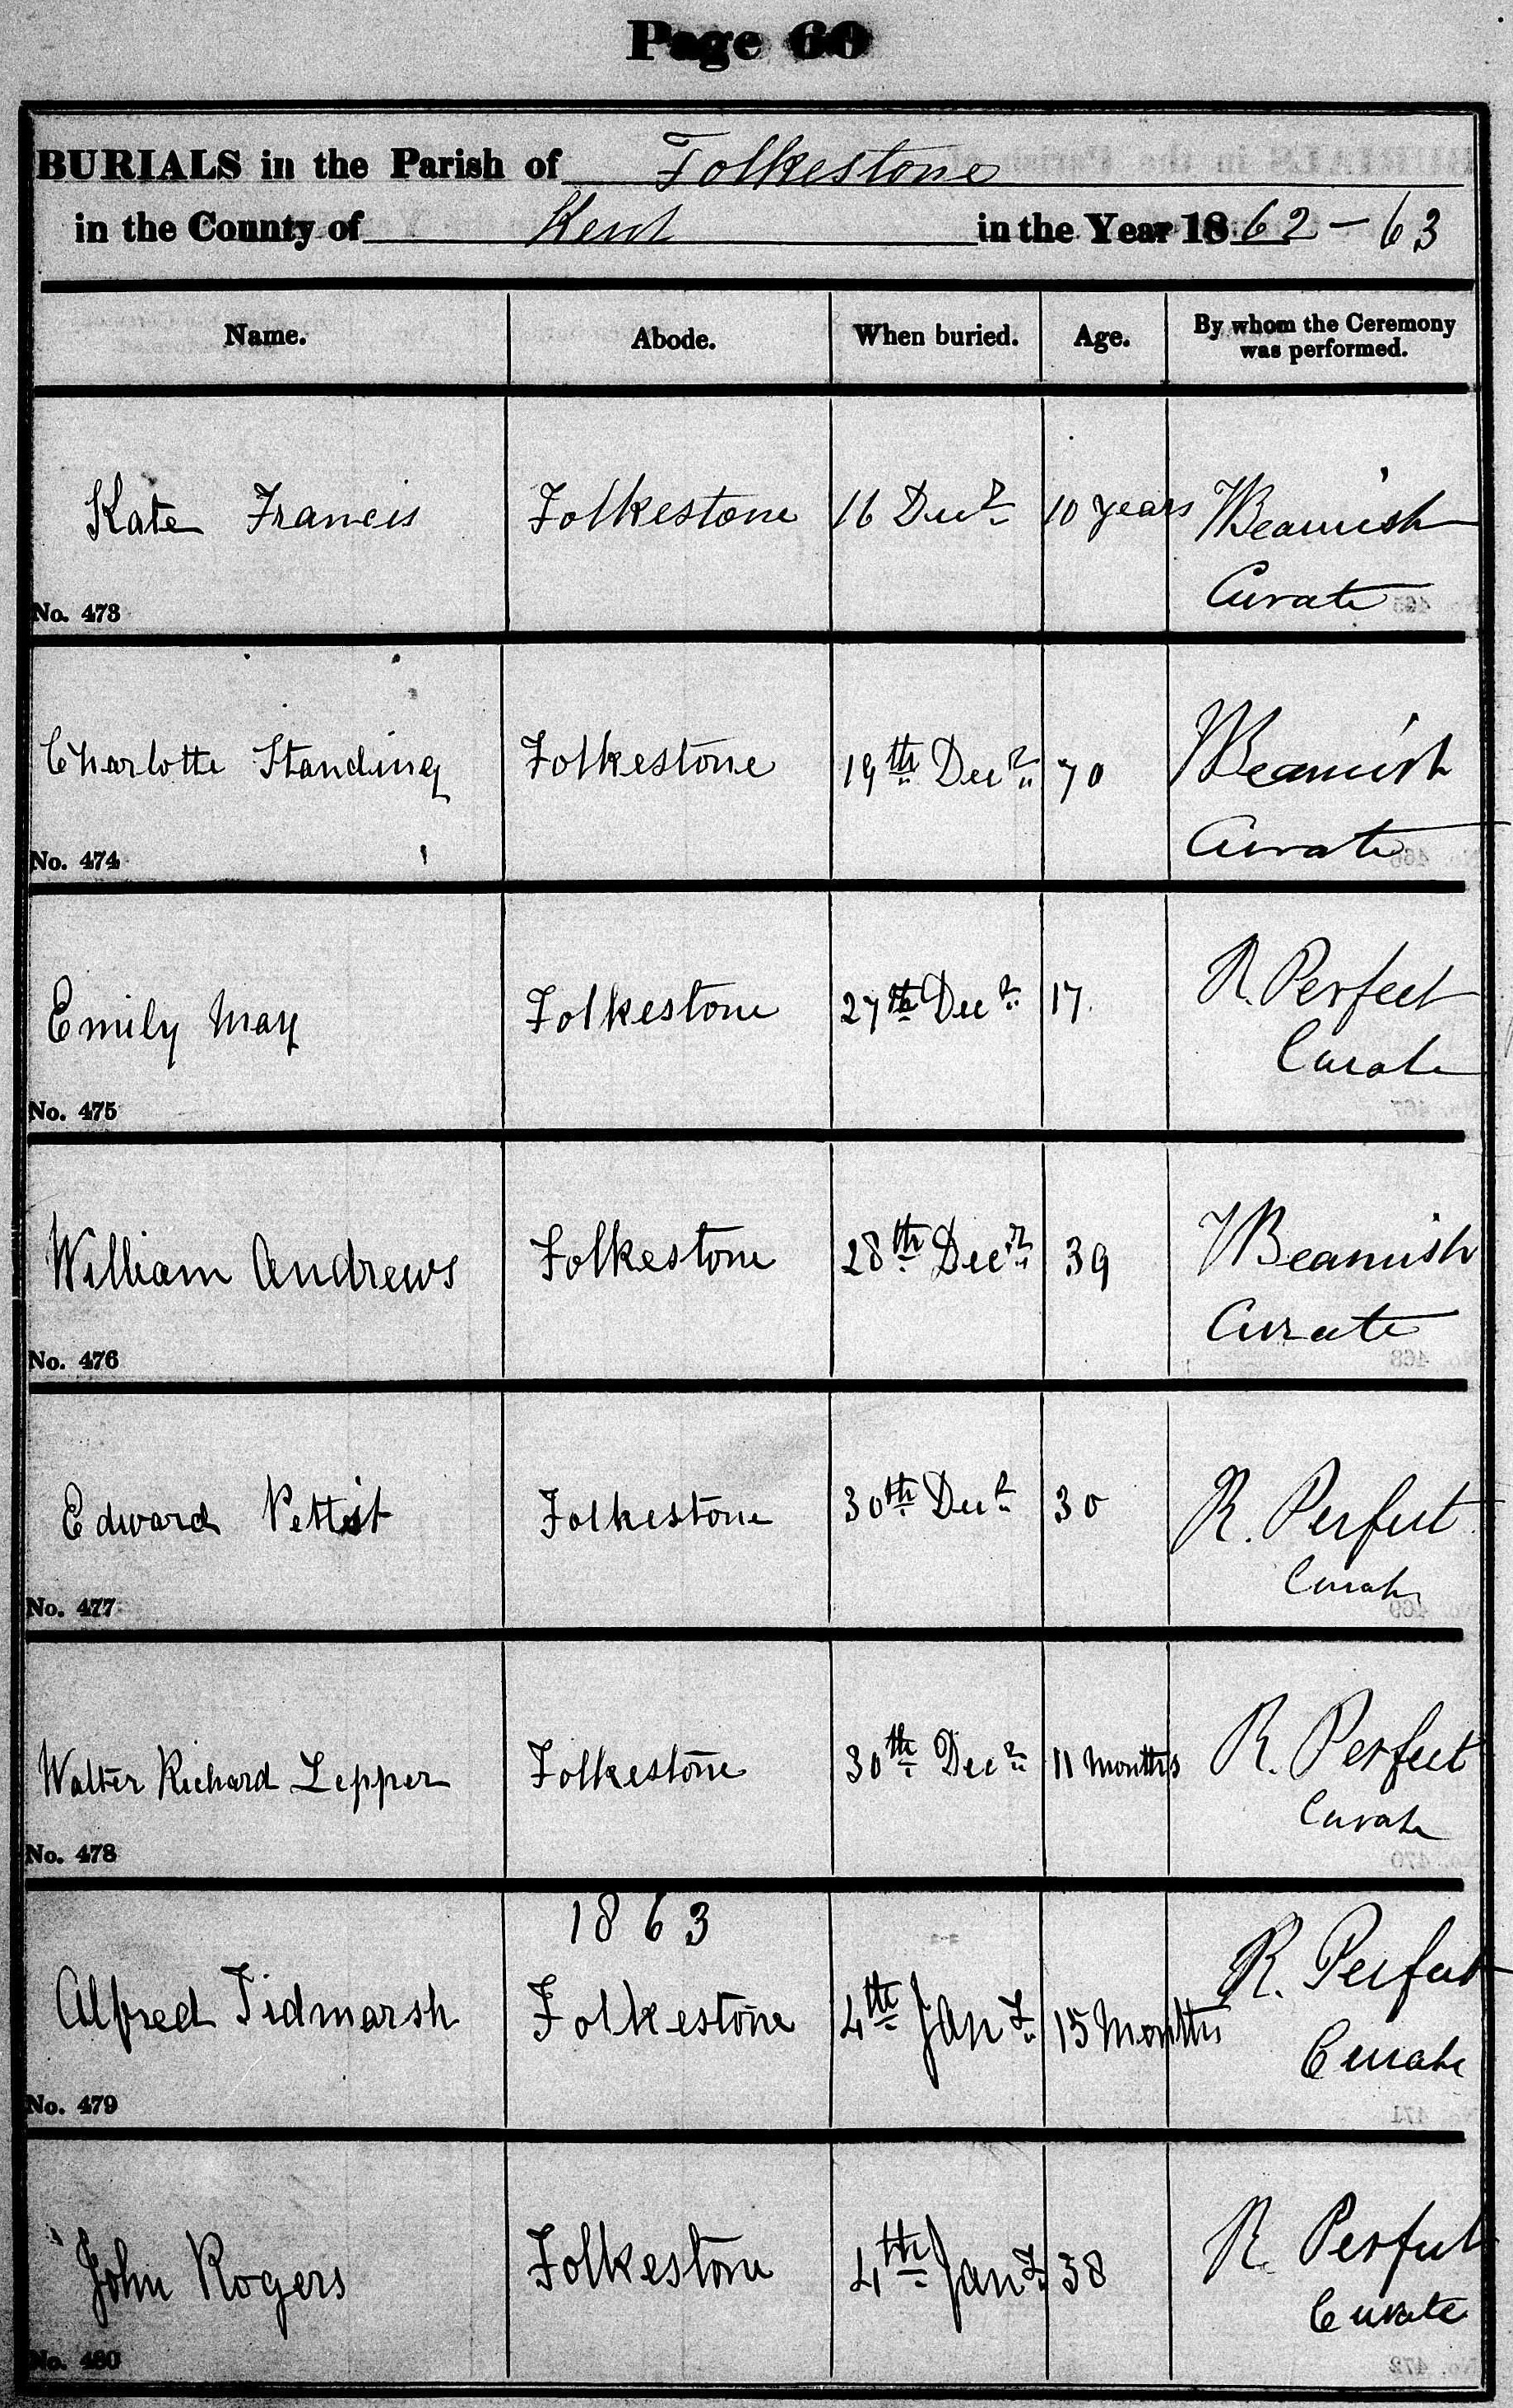 Page 60
BURIALS in the Parish of Folkestone
in the County of Kent in the Year 1862-63
Name. Abode. When buried. Age. By whom the Ceremony was performed.
Kate Francis Folkestone 16 Decr 10 years Beamish
Curate
No. 473
Charlotte Standing Folkestone 19th Decr 70 Beamish
Curate
No. 474
Emily May Folkestone 27th Decr 17. R. Perfect
Curate
No. 475
William Andrews Folkestone 28th Decr 39 Beamish
Curate
No. 476
Edward Pettit Folkestone 30th Decr 30 R. Perfect
Curate
No. 477
Walter Richard Lepper Folkestone 30th Decr 11 Months R. Perfect
Curate
No. 478
1863
Alfred Tidmarsh Folkestone 4th Jany 15 Months R. Perfect
Curate
No. 479
John Rogers Folkestone 4th Jany 38 R. Perfect
Curate
No. 480